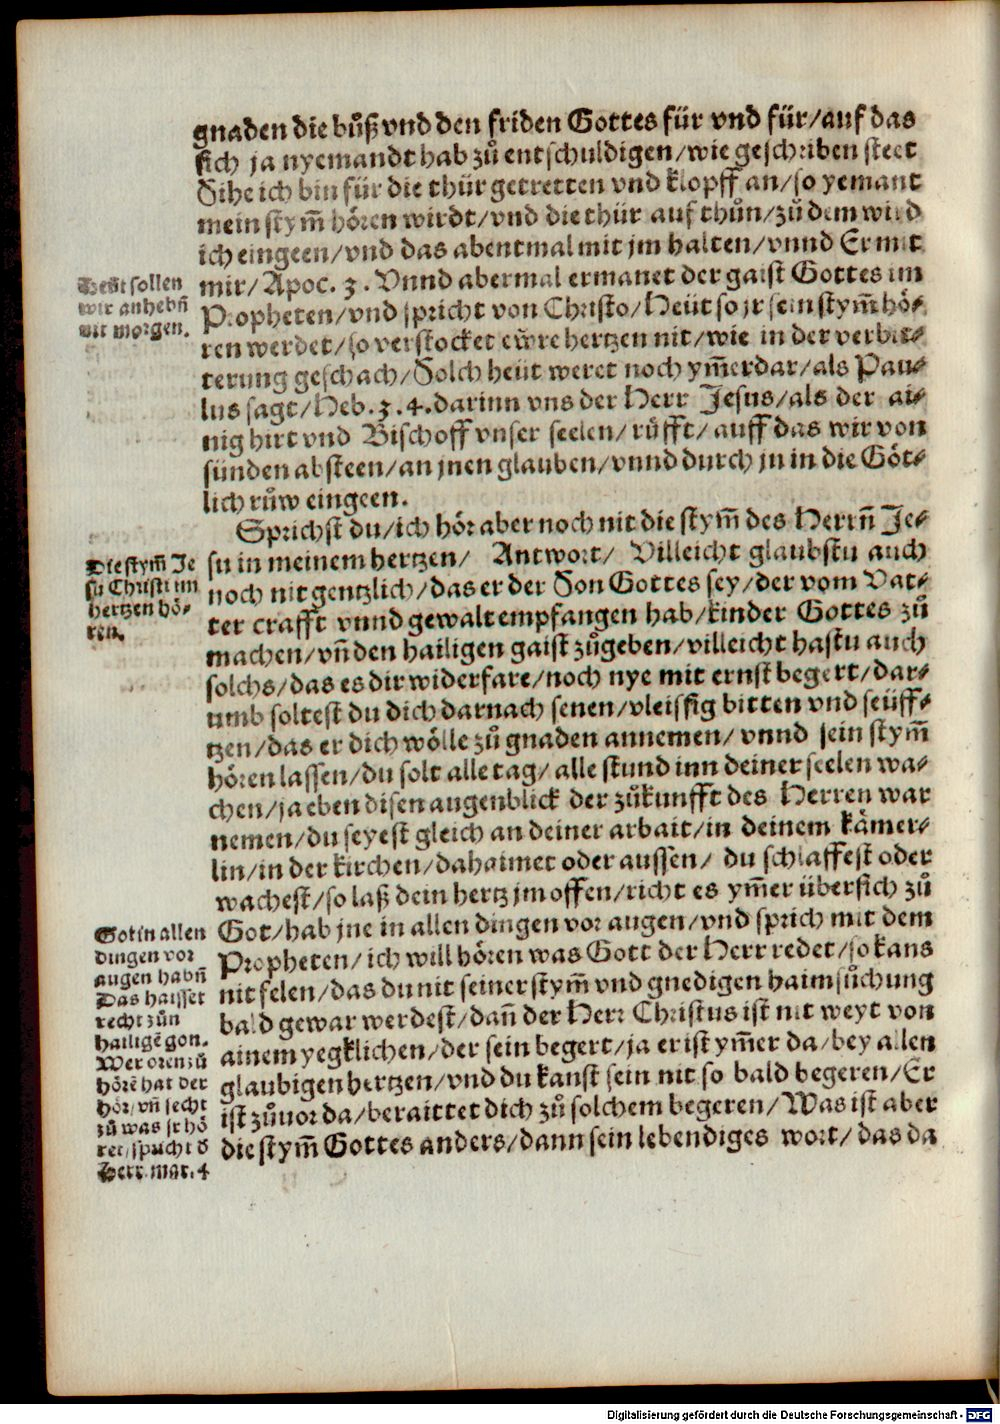 gnaden die bůß vnd den friden Gottes für vnd für/auf das
sich ja nyemandt hab zů entschuldigen/wie geschriben steet
Sihe ich bin für die thür getretten vnd klopff an/so yemant
mein stym̃ hören wirdt/vnd die thür auf thůn/zů dem wird
ich eingeen/vnd das abentmal mit jm halten/vnnd Er mit
mir/Apoc. 3. Vnnd abermal ermanet der gaist Gottes im
Propheten/vnd spricht von Christo/Heüt so jr sein stym̃ hö⸗
ren werdet/so verstocket eẅre hertzen nit/wie in der verbit⸗
terung geschach/Solch heüt weret noch ym̃erdar/als Pau⸗
lus sagt/Heb. 3. 4. darinn vns der Herr Jesus/als der ai⸗
nig hirt vnd Bischoff vnser seelen/růfft/auff das wir von
sünden absteen/an jnen glauben/vnnd durch jn in die Göt⸗
lich růw eingeen.
Heüt sollen
wir anhebñ
nit morgen.
Sprichst du/ich hör aber noch nit die stym̃ des Herrñ Je⸗
su in meinem hertzen/ Antwort/ Villeicht glaubstu auch
noch nit gentzlich/das er der Son Gottes sey/der vom Vat⸗
ter crafft vnnd gewalt empfangen hab/kinder Gottes zů
machen/vñ den hailigen gaist zůgeben/villeicht hastu auch
solchs/das es dir widerfare/noch nye mit ernst begert/dar⸗
umb soltest du dich darnach senen/vleissig bitten vnd seüff⸗
tzen/das er dich wölle zů gnaden annemen/vnnd sein stym̃
hören lassen/du solt alle tag/alle stund inn deiner seelen wa⸗
chen/ja eben disen augenblick der zůkunfft des Herren war
nemen/du seyest gleich an deiner arbait/in deinem kämer⸗
lin/in der kirchen/dahaimet oder aussen/ du schlaffest oder
wachest/so laß dein hertz jm offen/richt es ym̃er übersich zů
Got/hab jne in allen dingen vor augen/vnd sprich mit dem
Propheten/ich will hören was Gott der Herr redet/so kans
nit felen/das du nit seiner stym̃ vnd gnedigen haimsůchung
bald gewar werdest/dañ der Herr Christus ist nit weyt von
ainem yegklichen/der sein begert/ja er ist ym̃er da/bey allen
glaubigen hertzen/vnd du kanst sein nit so bald begeren/Er
ist zůuor da/beraittet dich zů solchem begeren/Was ist aber
die stym̃ Gottes anders/dann sein lebendiges wort/das da
Die stym̃ Je
su Christi im
hertzen hö⸗
ren.
Got in allen
dingen vor
augen habñ
Das haisset
recht zůn
hailigẽ gon.
Wer oren zů
hörẽ hat der
hör/vñ secht
zů was jr hö
ret/spricht d̓
Herr. mar. 4
Digitalisierung gefördert durch die Deutsche Forschungsgemeinschaft - DFG